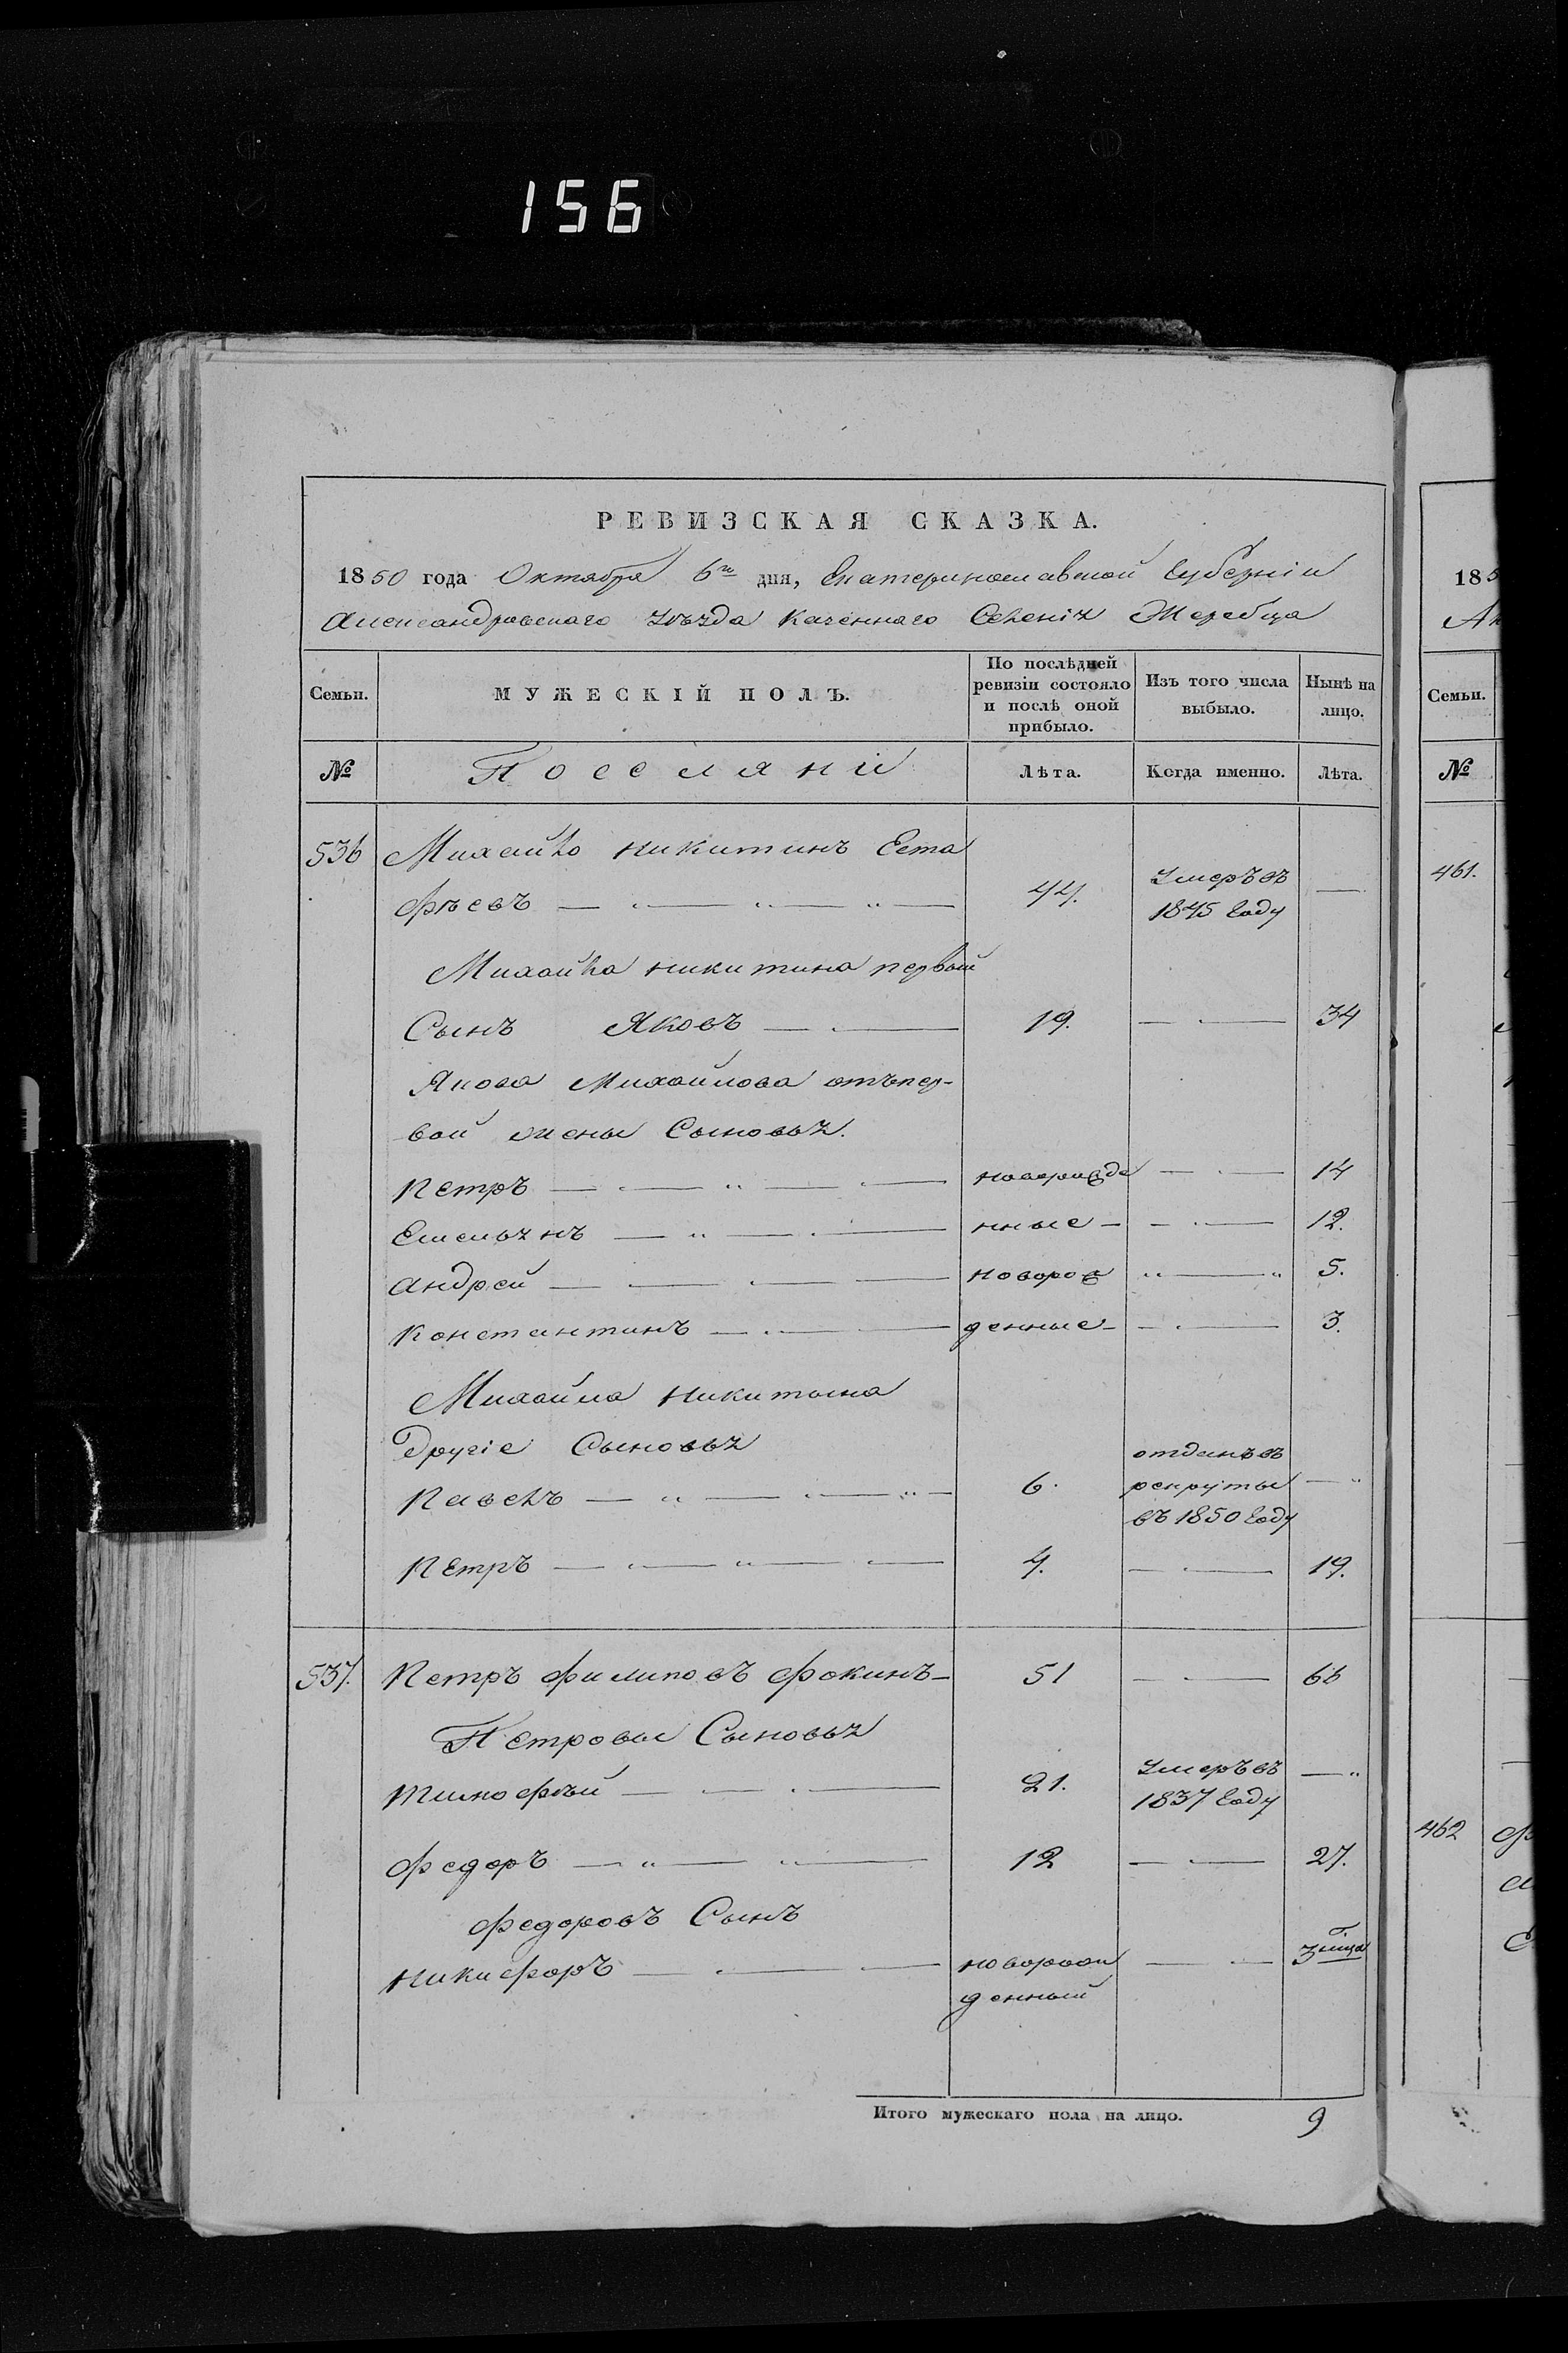 156
РЕВИЗСКАЯ СКАЗКА.
1850 года Октября 6го дня, Екатеринославской Губерніи
Александровскаго Уѣзда Казеннаго Селенія Жеребца
Семьи. МУЖЕСКІЙ ПОЛЪ. По послѣдней ревизіи состояло и послѣ оной прибыло. Изъ того числа выбыло. Нынѣ на лицо.
№ Поселяни Лѣта. Когда именно. Лѣта.
536 Михайло Никитинъ Еста
фѣевъ — 44. Умеръ въ 1845 Году —
Михайла Никитина первый
Сынъ Яковъ — 19. — 34
Якова Михайлова отъ пер-
вой жены Сыновья.
Петръ — новорожде — 14
Емельянъ — нные — — 12.
Андрей — новорож — 5.
Константинъ — денные — — 3.
Михайла Никитина
Другіе Сыновья
Павелъ — 6. отданъ въ рекруты въ 1850 Году —
Петръ — 4. — 19.
537. Петръ Филиповъ Фокинъ — 51 — 66
Петровы Сыновья
Тимофѣй — 21. Умеръ въ 1837 Году —
Федоръ — 12 — 27.
Федоровъ Сынъ
Никифоръ — новорож — 3
денный
Итого мужескаго пола на лицо. 9
185
Семьи.
№
461.
462